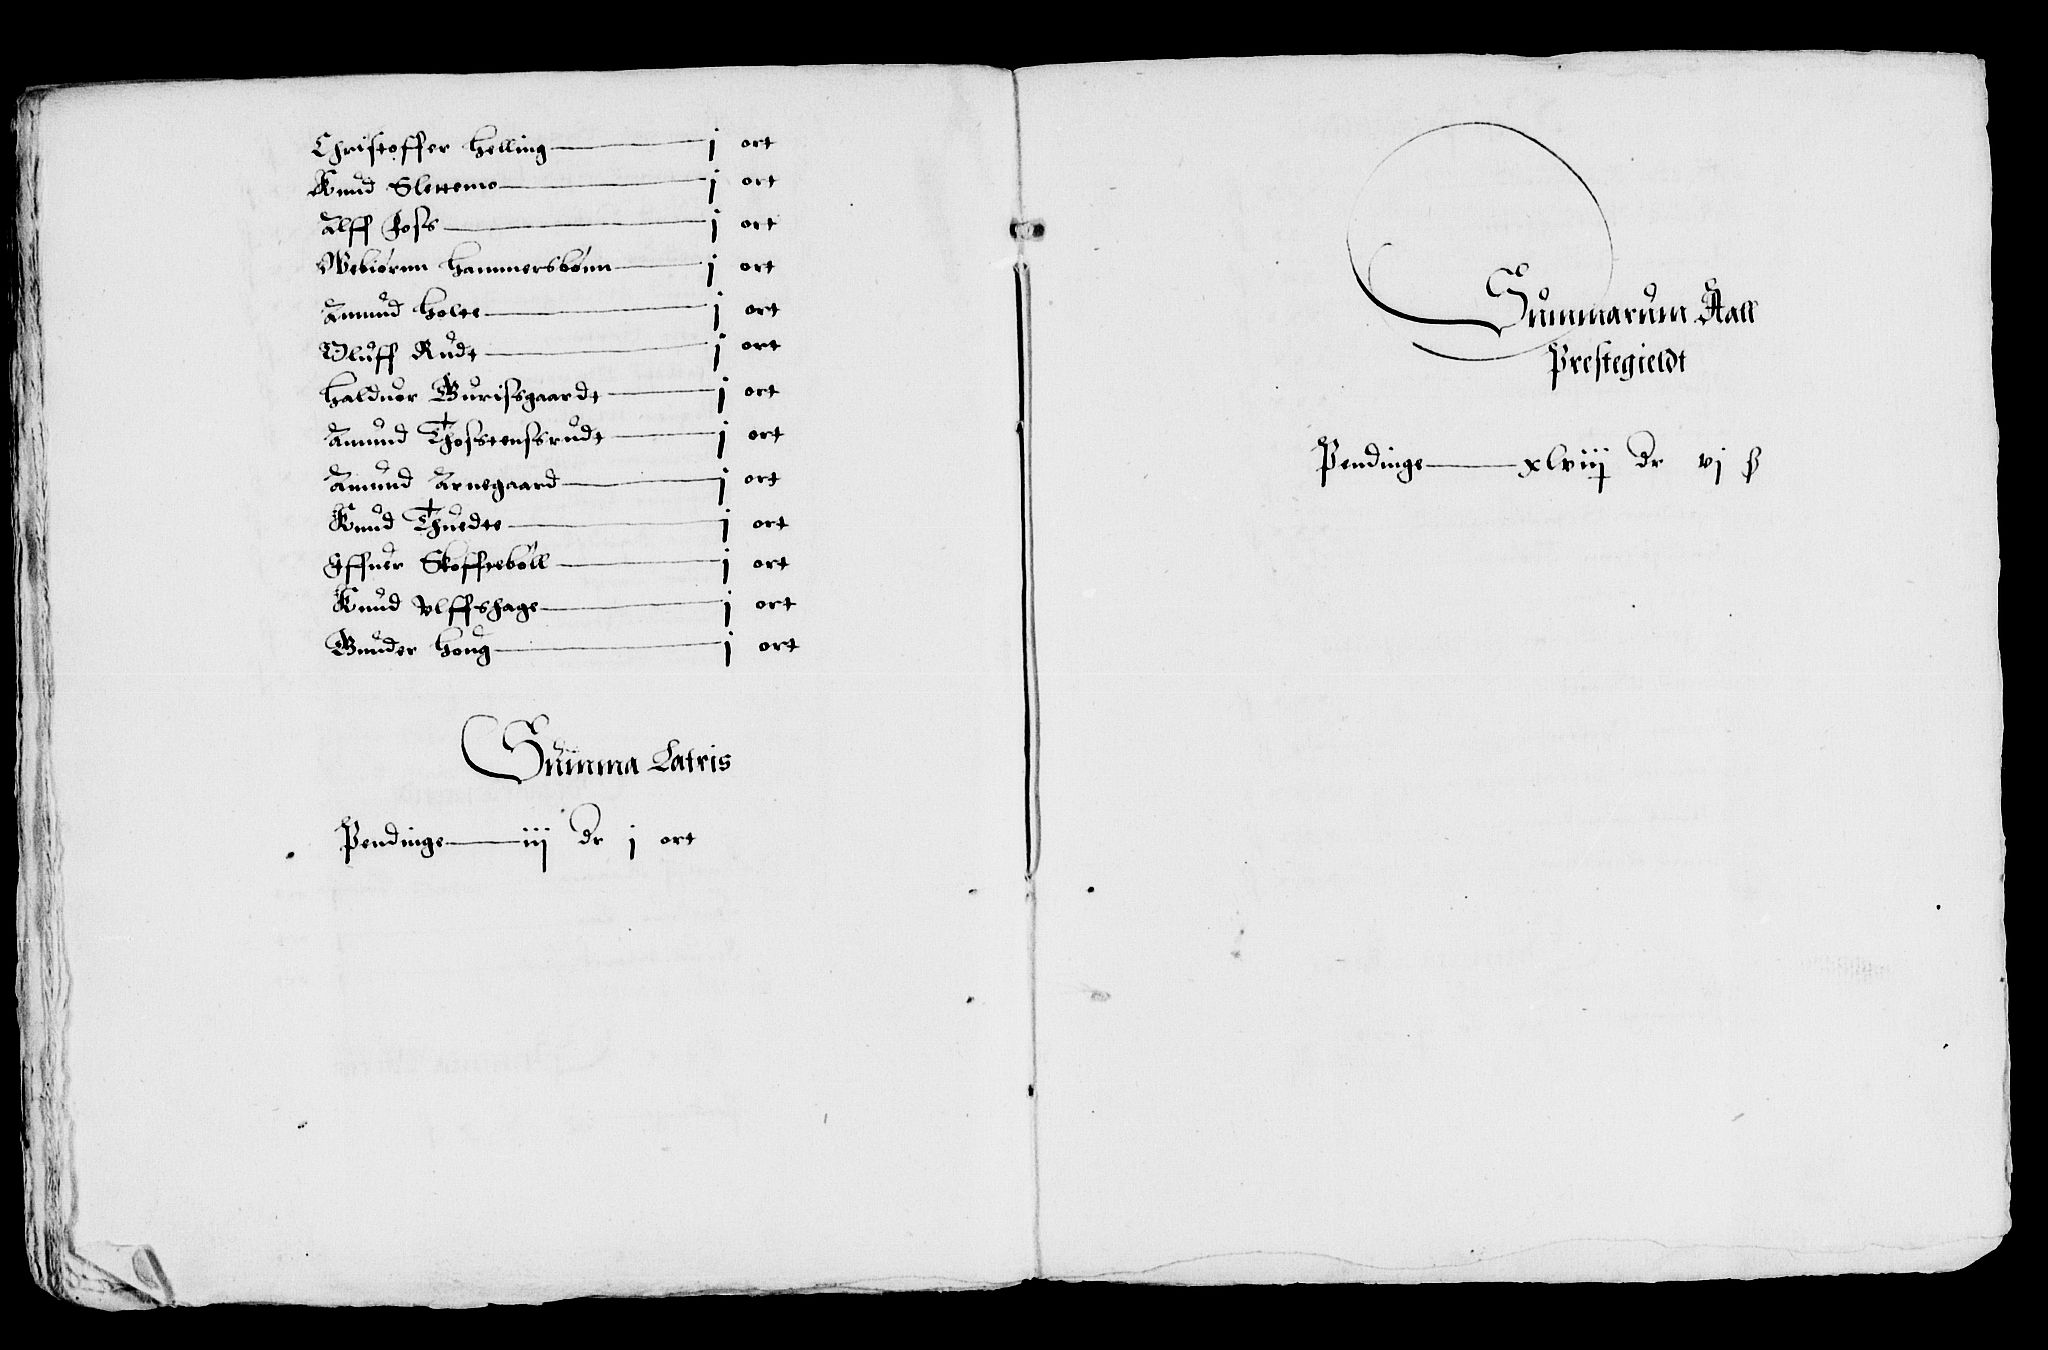 Christoffer Helling — j ort
Knud Slettemo — j ort
Alff Joss — j ort
Webiørnn Hammersbønn — j ort
Amund Holte — j ort
Oluff Rudt — j ort
Halduor Gurissgaardt — j ort
Amund Thosstenssrudt — j ort
Amund Arnegaard — j ort
Knud Thuedte — j ort
Iffuer Skofftebøll — j ort
Knud Vlffshage — j ort
Gunder Houg — j ort
Summa Latris
Pendinge — iij dr j ort
Summarum Aall
Prestegieldt
Pendinge — xlviij dr vj ß